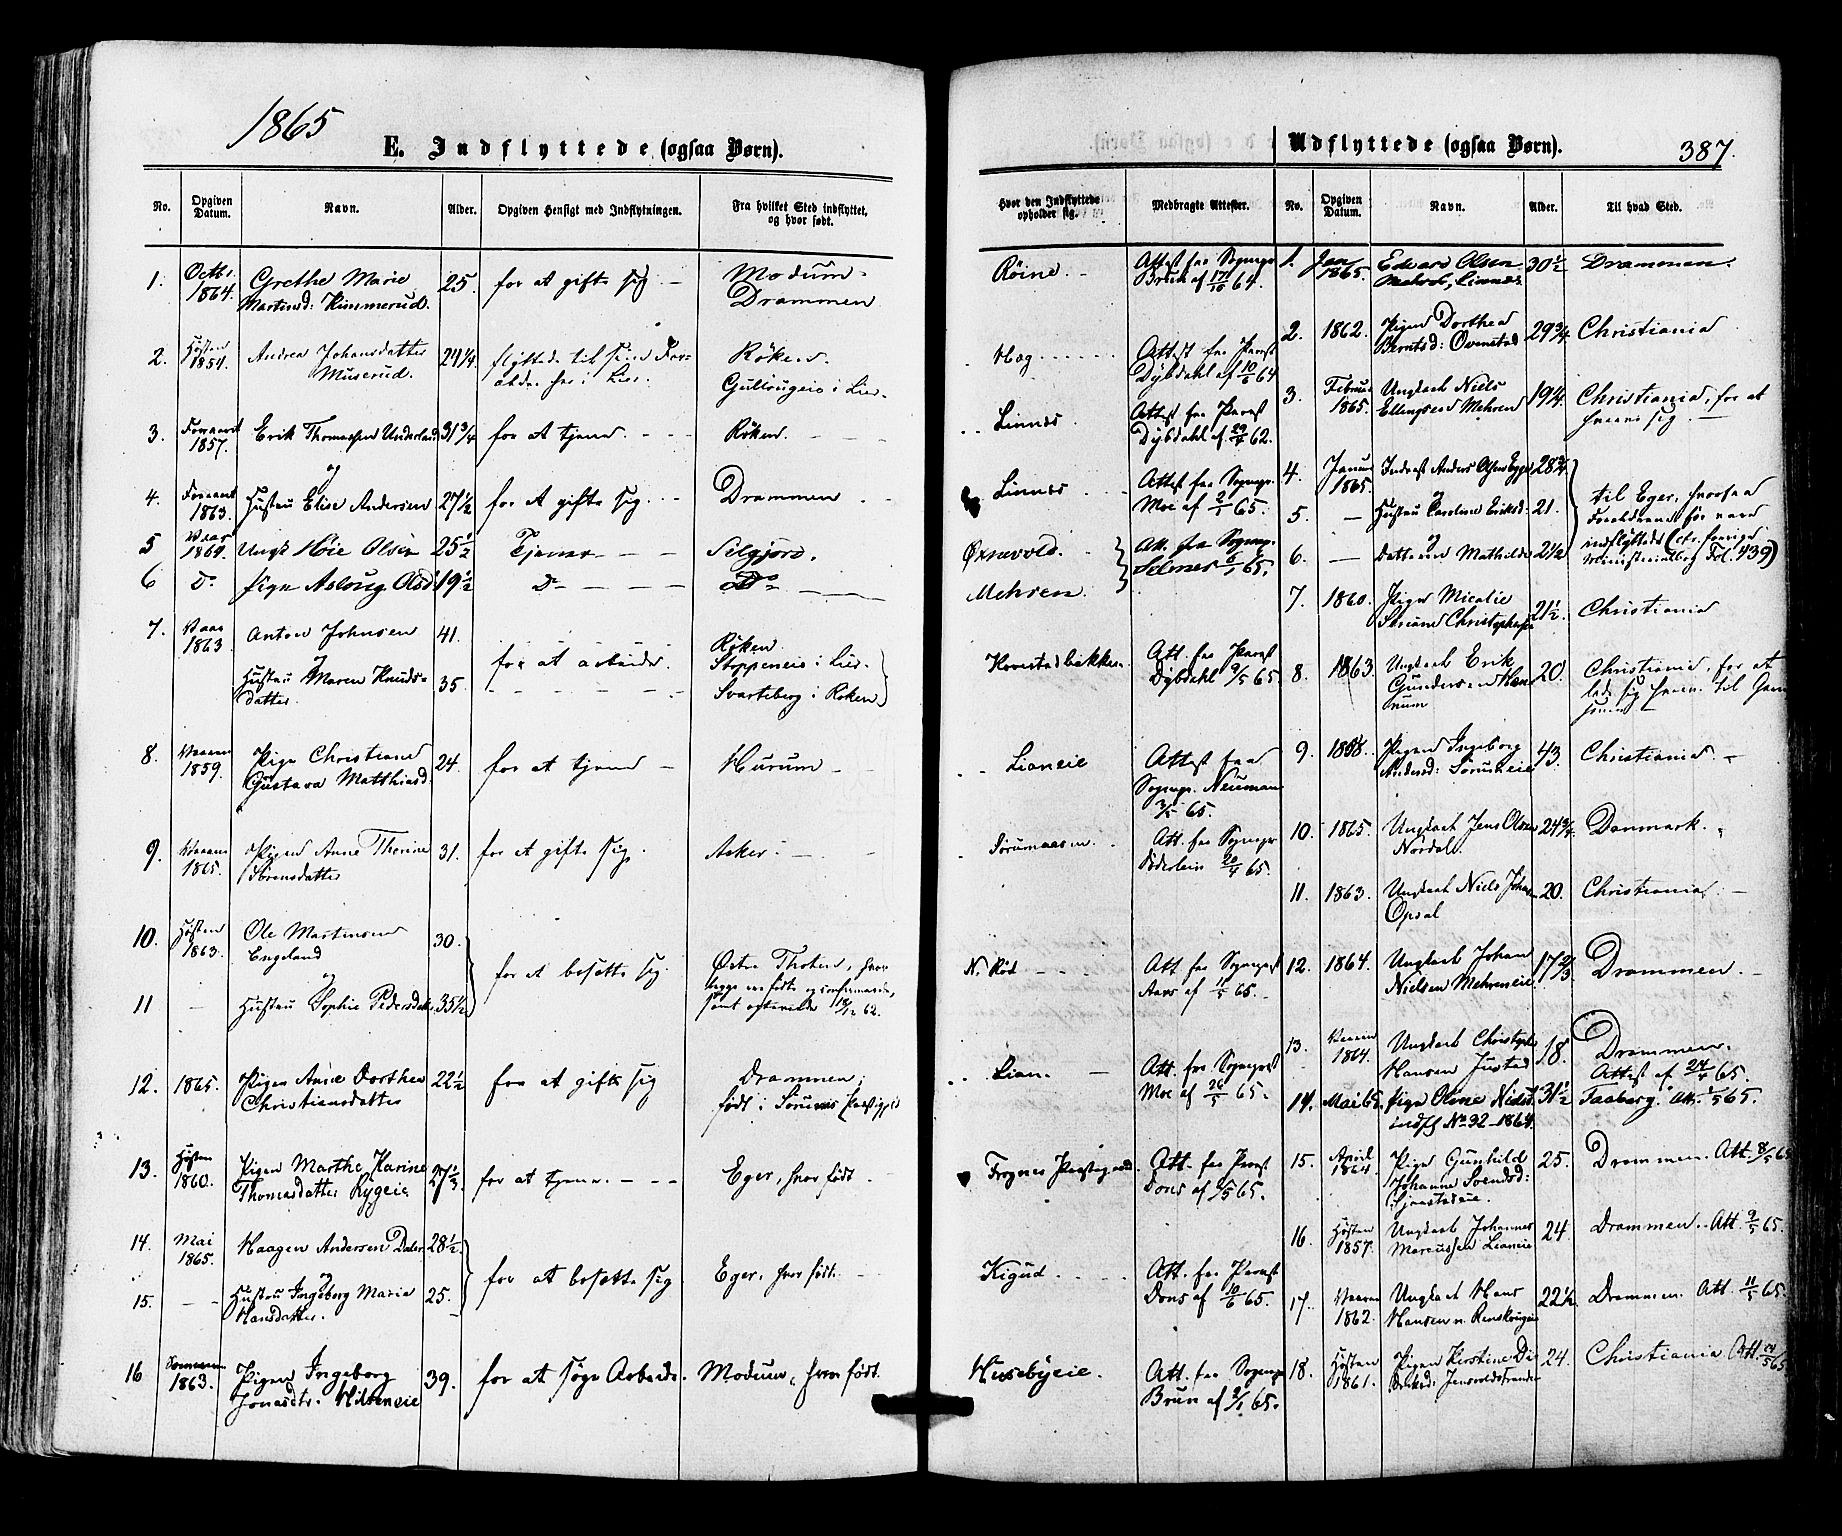 1865
E. Indflyttede (ogsaa Børn).
No. Opgiven Datum. Navn. Alder. Opgiven Hensigt med Indflytningen. Fra hvilket Sted indflyttet, og hvor født.
1. Octbr. 1864. Grethe Marie 25. for at gifte sig. Modum.
Martinsd: Himmerud. Drammen
2. Høsten 1854. Andrea Johansdatter 24 1/4 flyttede til sine For- Røken.
Muserud. ældre her i Lier. i Lier.
3. Foraaret 1857. Erik Thomassen 31 3/4 for at tjene. Røken.
og
4. Foraaret 1863. Hustru Elise Andersen 27 1/2 for at gifte sig. Drammen
5 Vaar 1864. Ungk Olsen 25 1/2 Tjener Silgjord.
6 Do. Pige Aslaug Olsd 19 1/2 Do Do
7. Vaar 1863 Anton Johnsen 41. Røken
og for at arbeide. i Lier.
Hustru Maren Knuds- 35.
datter. Svarteberg i Røken
8. Vaaren 1859. Pige Christiane 24. for at tjene Hurum
Gustava Matthiasd
9. Vaaren 1865. Pigen Anne Thorine 31. for at gifte sig. Aker.
Sørensdatter
10. Høsten 1863. Ole Martinsen 30.
Engeland
og for at bosætte sig. Østre Thoten, hvor
11 Hustru Sophie Pedersdatter 35 1/2 begge ere fødte og confirmerede,
samt ægteviede 62.
12. 1865. Pigen Anne Dorthea 22 1/2 for at gifte sig Drammen;
Christiansdatter født i Sørums Præstegjeld
13. Høsten 1860. Pigen Marthe Karine for at tjene. Eger, hvor født.
Thomasdatter Rygeie
14. Mai 1865. Haagen Andersen 28 1/2
og for at bosætte sig Eger, hvor født.
15. Hustru Ingeborg Maria 25.
Hansdatter.
16 Sommeren 1863. Pigen Ingeborg 39. for at søge Arbeide. Modum, hvor født.
Jonasdtr.
Udflyttede (ogsaa Børn).
387.
Hvor den Indflyttede opholder sig. Medbragte Attester. No. Opgiven Datum. Navn. Alder. Til hvad Sted.
Røine. Attest fra Sognepr. Brun af 17/10 64.
Hag Attest fra Provst Dybdahl af 10/6 64
Linnes. Attest fra Provst Dybdahl af 29/4 62.
Linnes Attest fra Sognepr. Moe af 2/1 65.
Øxnevold. Att. fra Sognepr. Selmer 6/1 65.
Mehren.
Att. fra Provst Dybdahl 9/5 65
Lianeie Attest fra Sognepr. Neumann 3/5 65.
Att. fra Sognepr Döderlein 20/4 65.
N. Rød Att fra Sognepræst Aars af 11/5 65.
Lian. Att. fra Sognepræst Moe af 26/5 65.
Frognes Præstegaard Att. fra Provst Dons af 1/5 65.
Kigud Att. fra Provst Dons af 10/6 65.
Husebyeie. Att. fra Sognepr Brun af 2/1 65.
1. Jan 1865. Edvard Olsen 30 1/2 Drammen.
Mehreb, Linnes.
2. 1862. Pigen Dorthea 29 3/4 Christiania
Berntsd: Ovenstad
3. Februar 1865. Ungkarl Niels 19 1/4. Christiania, for at
Ellingsen Mehren
4. Januar 1865. Inderst Anders Olsen 28 3/4
og
5. Hustru Caroline Eriksd: 21. til Eger, hvorfra
og Forældrene før vare
6. Datteren Mathilde 2 1/2 indflyttede (cfr. forrige
Ministerialbog Fol. 439)
7. 1860. Pigen Micalie 21 1/2. Christiania
8. 1863 Ungkarl Erik 20. Christiania, for at
Gundersen
9. 1858. Pigen Ingeborg 43. Christiania.
Andersd:
10. 1865. Ungkarl Jens Olsen 24 3/4. Danmark.
Nordal.
11. 1863. Ungkarl Niels 20. Christiania
Opsal
12. 1864. Ungkarl Johan 17 2/3 Drammen.
Nielsen Mehreneie
13. Vaaren 1864. Ungkarl Christopher 18. Drammen.
Hansen Justad Attest af 24/4 65.
14. Mai 65. Pige Oline 31 1/2 Faaberg. Att. 1/5 65.
indfl No 32 - 1864.
15. April 1864. Pige Gunhild 25. Drammen. Att. 8/5 65
Johanne Svendsd:
16. Høsten 1857. Ungkarl Johannes 24. Drammen. Att. 9/5 65.
Marcussen Lianeie
17. Vaaren 1862. Ungkarl Hans 22 1/2. Drammen. Att. 11/5 65.
Hansen
18. Høsten 1861. Pigen Kerstine 24. Christiania Att.